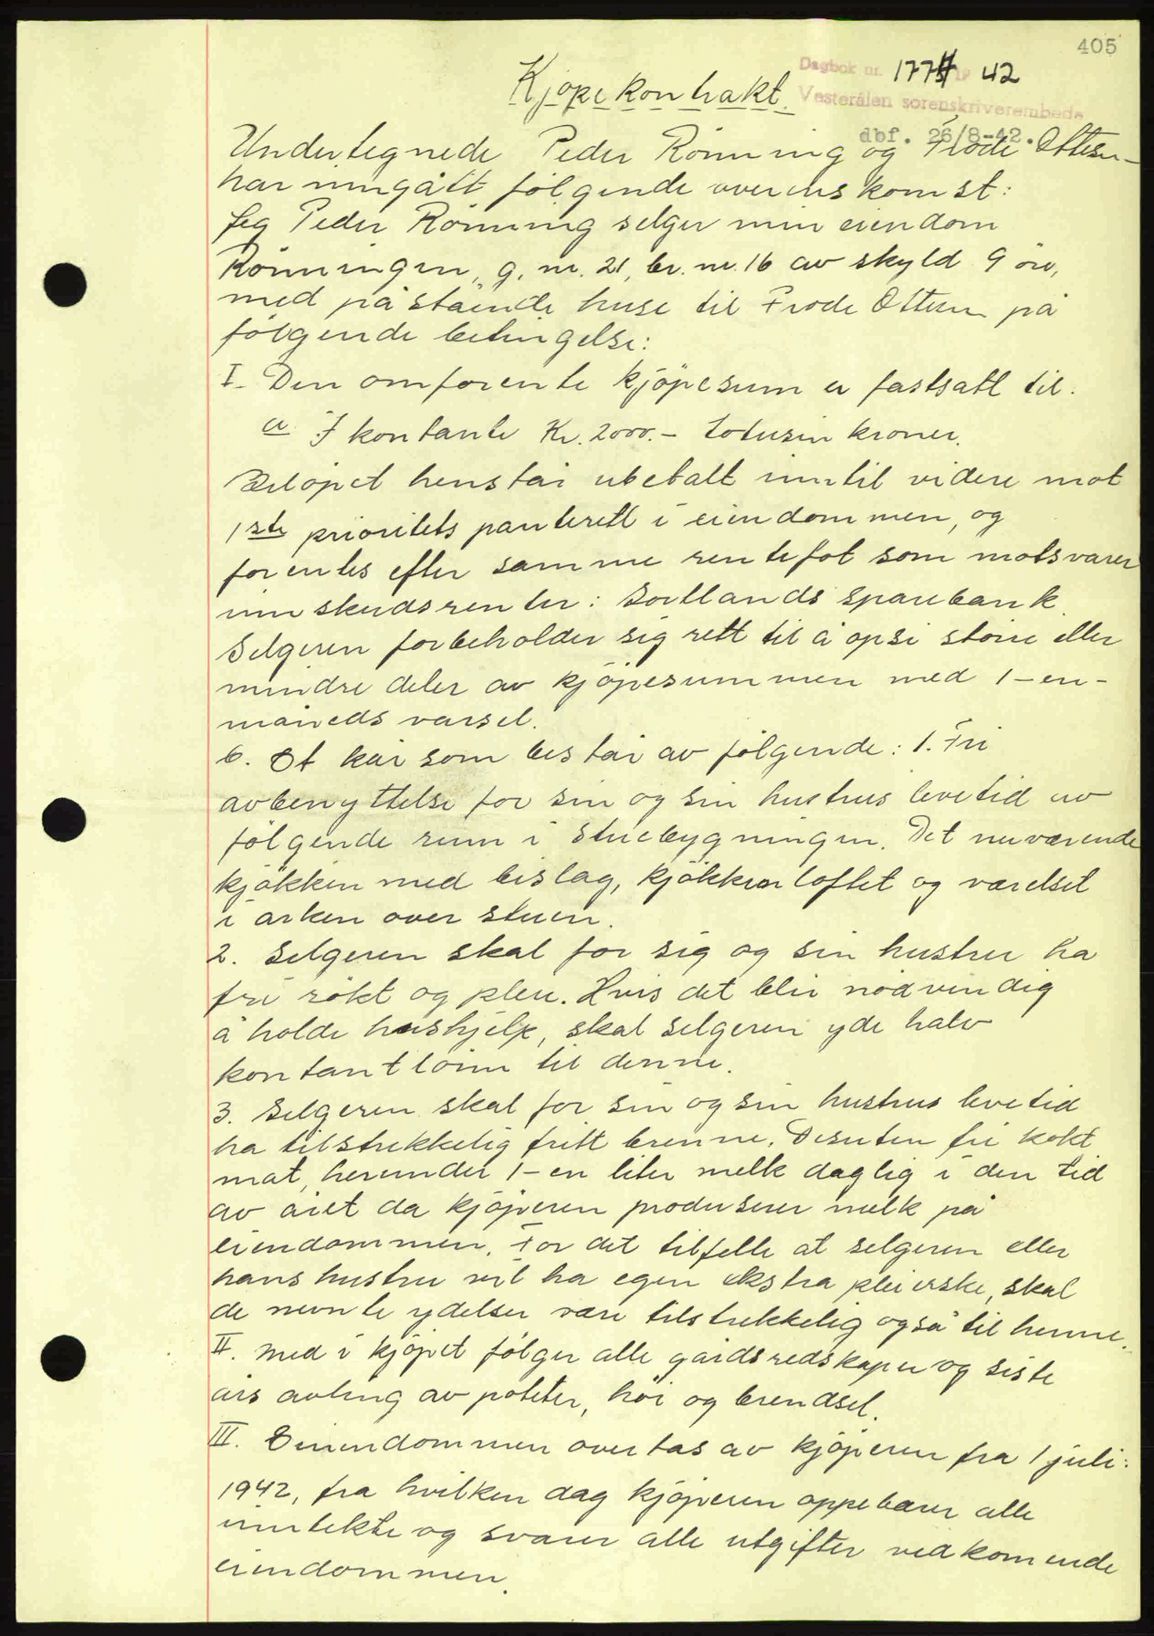 405
Dagbok nr. 1774 19 42
Vesterålen sorenskriverembede
dbf. 26/8-42.
Kjöpekontrakt.
Undertegnede Peder Rönning og Frode Ottesen
har inngått fölgende overenskomst:
Jeg Peder Rönning selger min eiendom
Rönningen, g. nr. 21, br. nr. 16 av skyld 9 öre,
med påstående huse til Frode Ottesen på
fölgende betingelse:
I. Den omforente kjöpesum er fastsatt til.
a I kontante Kr. 2000.- totusin kroner.
Belöpet henstår ubetalt inntil videre mot
1ste prioritets panterett i eiendommen, og
forentes efter samme rentefot som motsvarer
innskudsrenter: Sortlands Sparebank.
Selgeren forbeholder sig rett til å opsi störe eller
mindre deler av kjöpesummen med 1-en-
måneds varsel.
b. Et kår som består av fölgende: 1. Fri
avbenyttelse for sin og sin hustrus levetid av
fölgende rum i Stuebygningen. Det nuværende
kjökken med bislag, kjökkenloftet og værelset
i arken over stuen.
2. Selgeren skal for sig og sin hustru ha
fri rökt og pleie. Hvis det blir nödvendig
å holde hushjelp, skal selgeren yde halv
kontantlönn til denne.
3. Selgeren skal for sin og sin hustrus levetid
ha tilstrekkelig fritt brenne. Desuten fri kokt
mat, herunder 1-en liter melk daglig i den tid
av året da kjöperen produserer melk på
eiendommen. For det tilfelle at selgeren eller
hans hustru vil ha egen ekstra pleierske, skal
de nevnte ydelser være tilstrekkelig også til henne.
II. Med i kjöpet fölger alle gårdsredskaper og siste
års avling av poteter, höi og brendsel.
III. Eiendommen overtas av kjöperen fra 1 juli.
1942, fra hvilken dag kjöperen oppebærer alle
inntekte og svarer alle utgifter vedkomende
eiendommen.